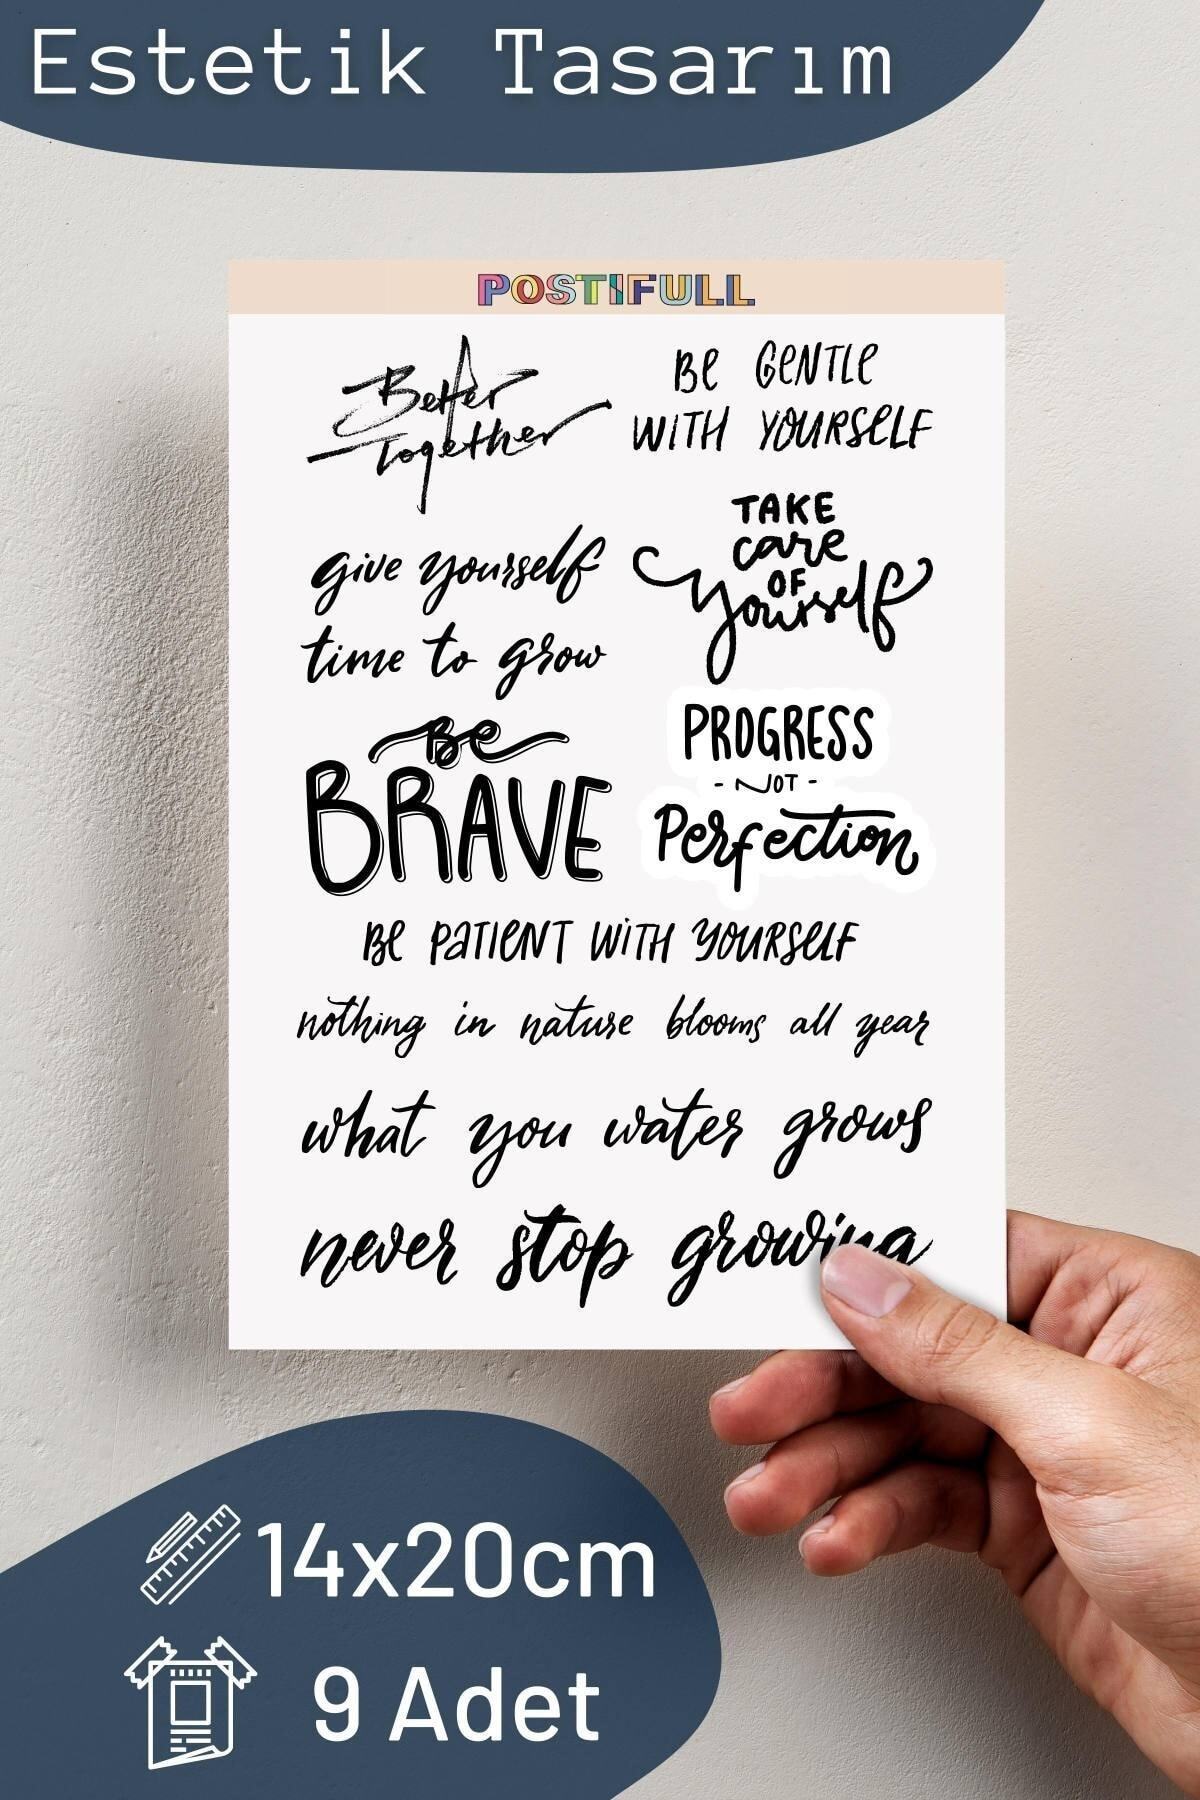 Estetik Tasarım
POSTIFULL
Better
Together
Be GeNTLe
WITH YOURSeLF
give yourself
time to grow
TAKE
care
OF
yourself
Be
BRAVE
PROGRESS
- NOT -
Perfection
Be PaTIeNT WiTH YOURSeLF
nothing in nature blooms all year
what you water grows
never stop growing
14x20cm
9 Adet